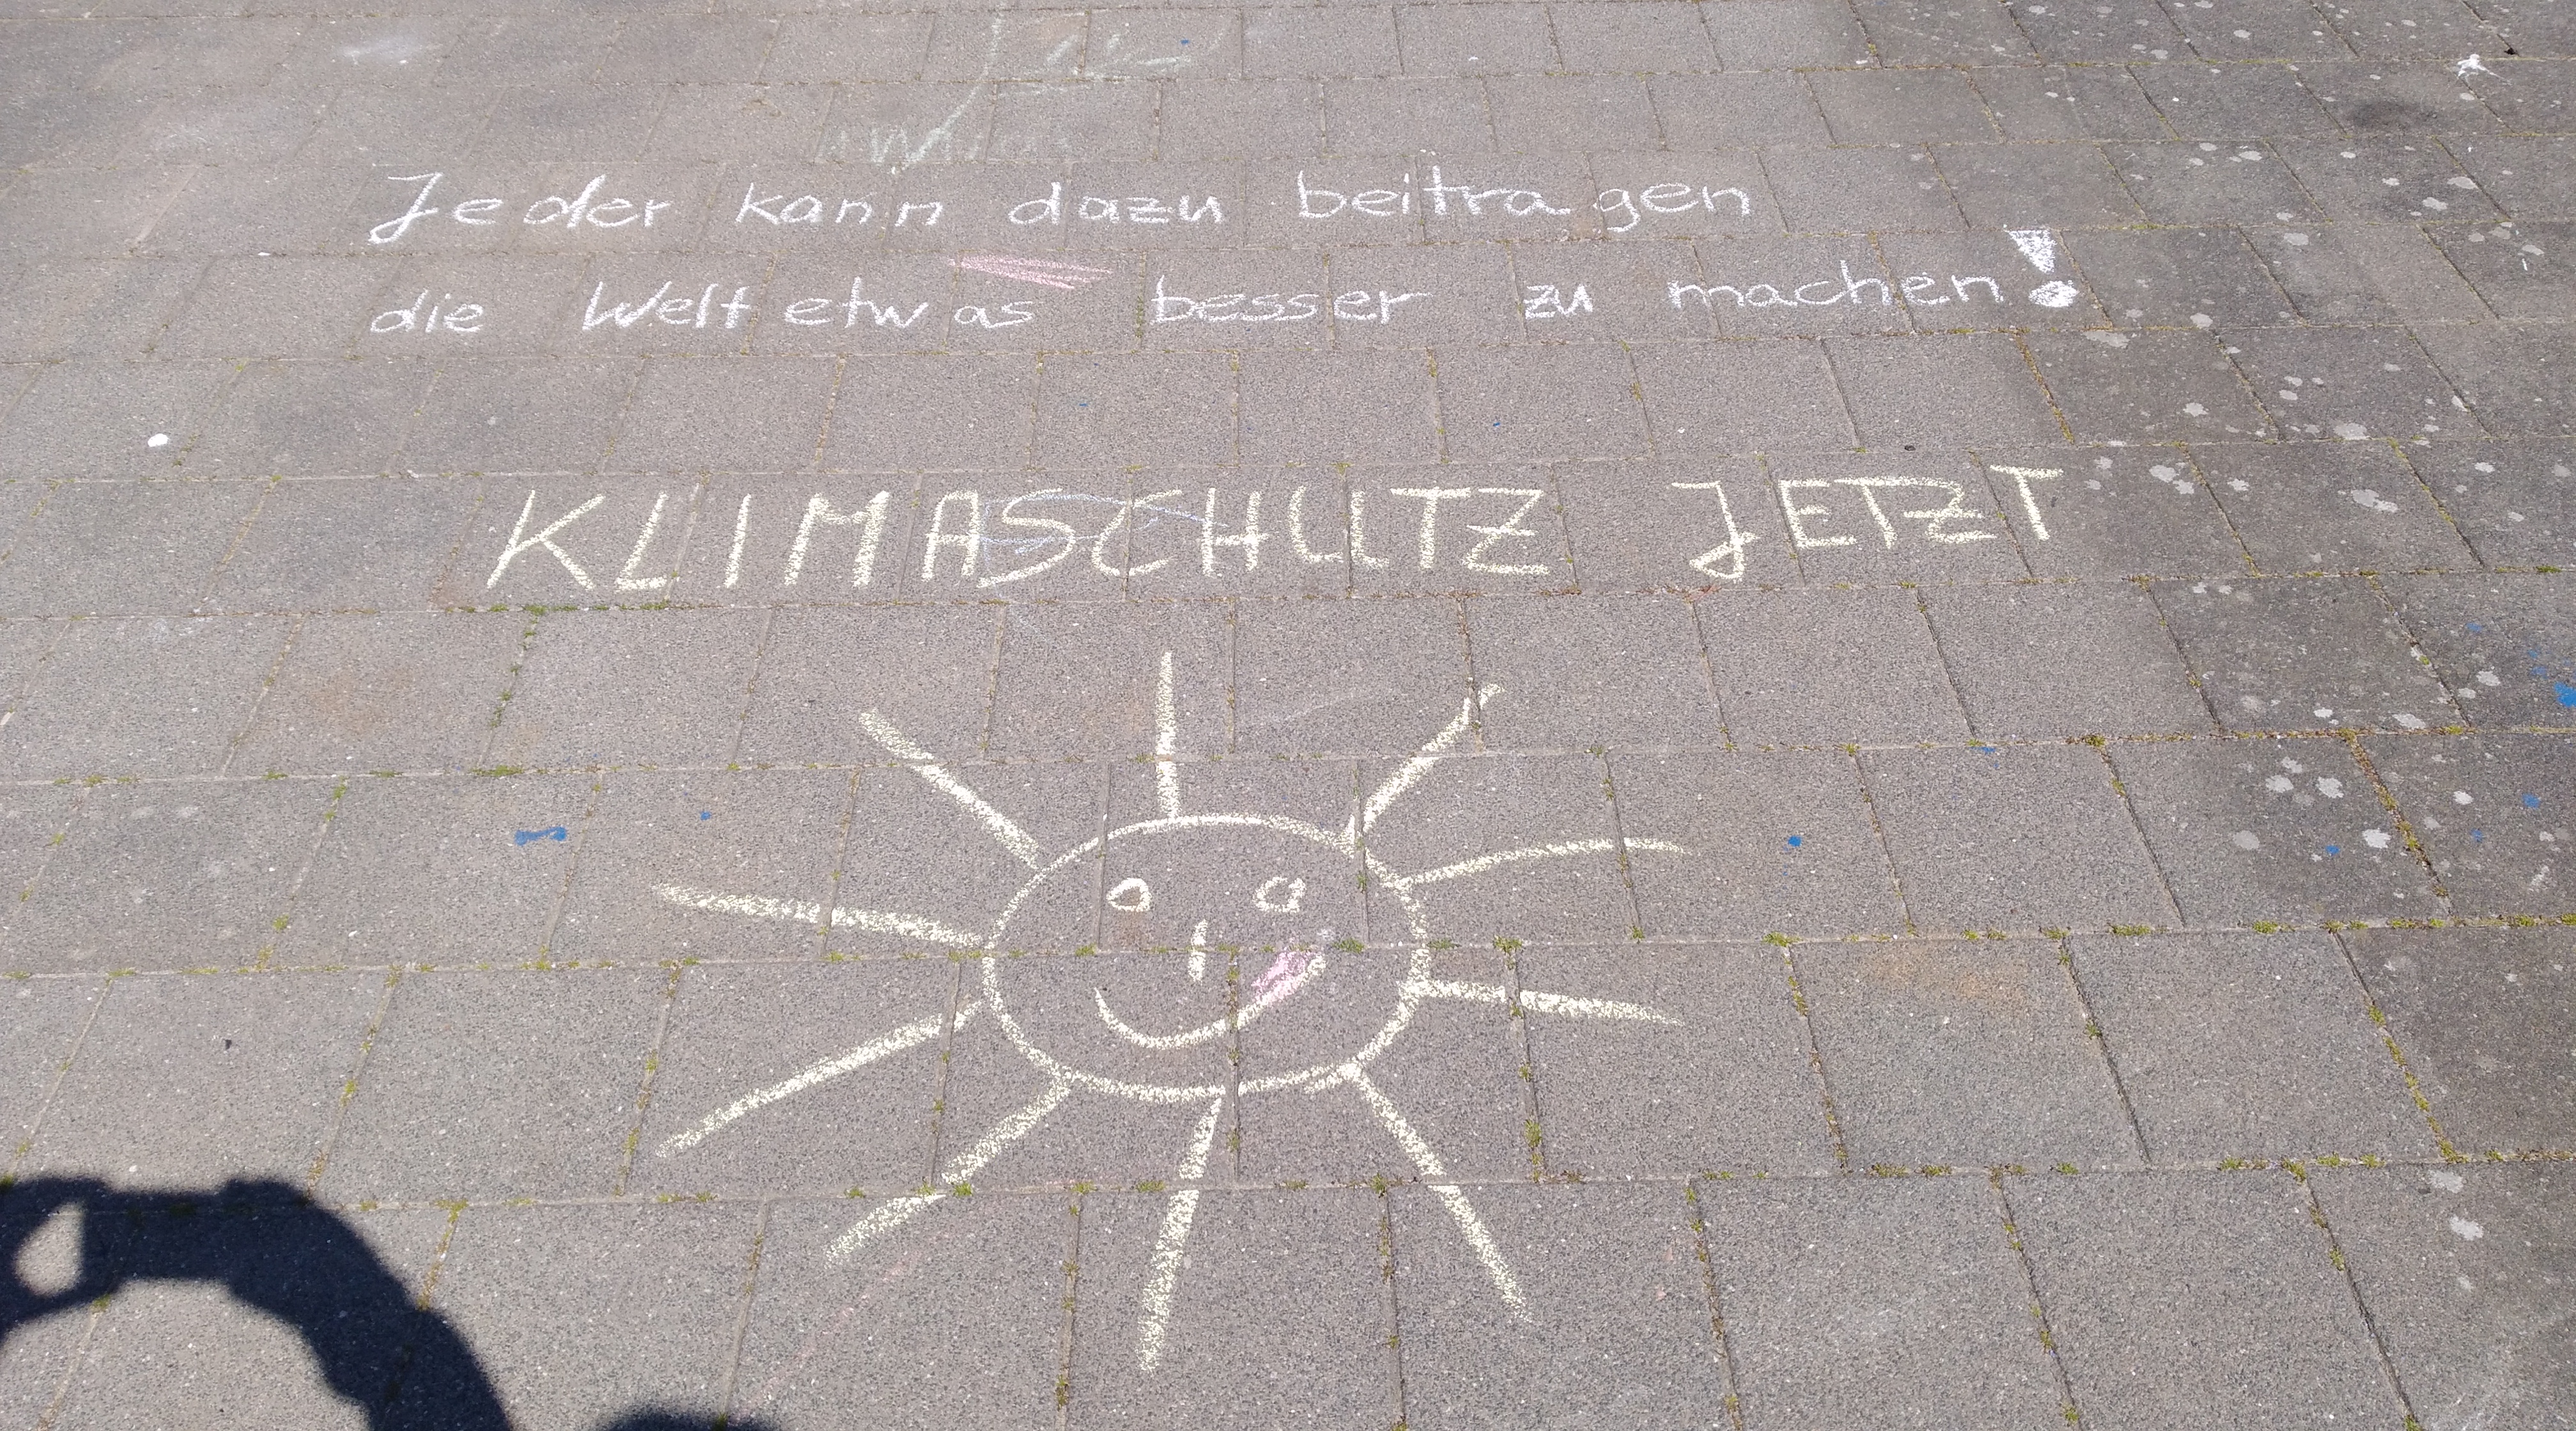 Jeder kann dazu beitragen
die Welt etwas besser zu machen!
KLIMASCHUTZ JETZT